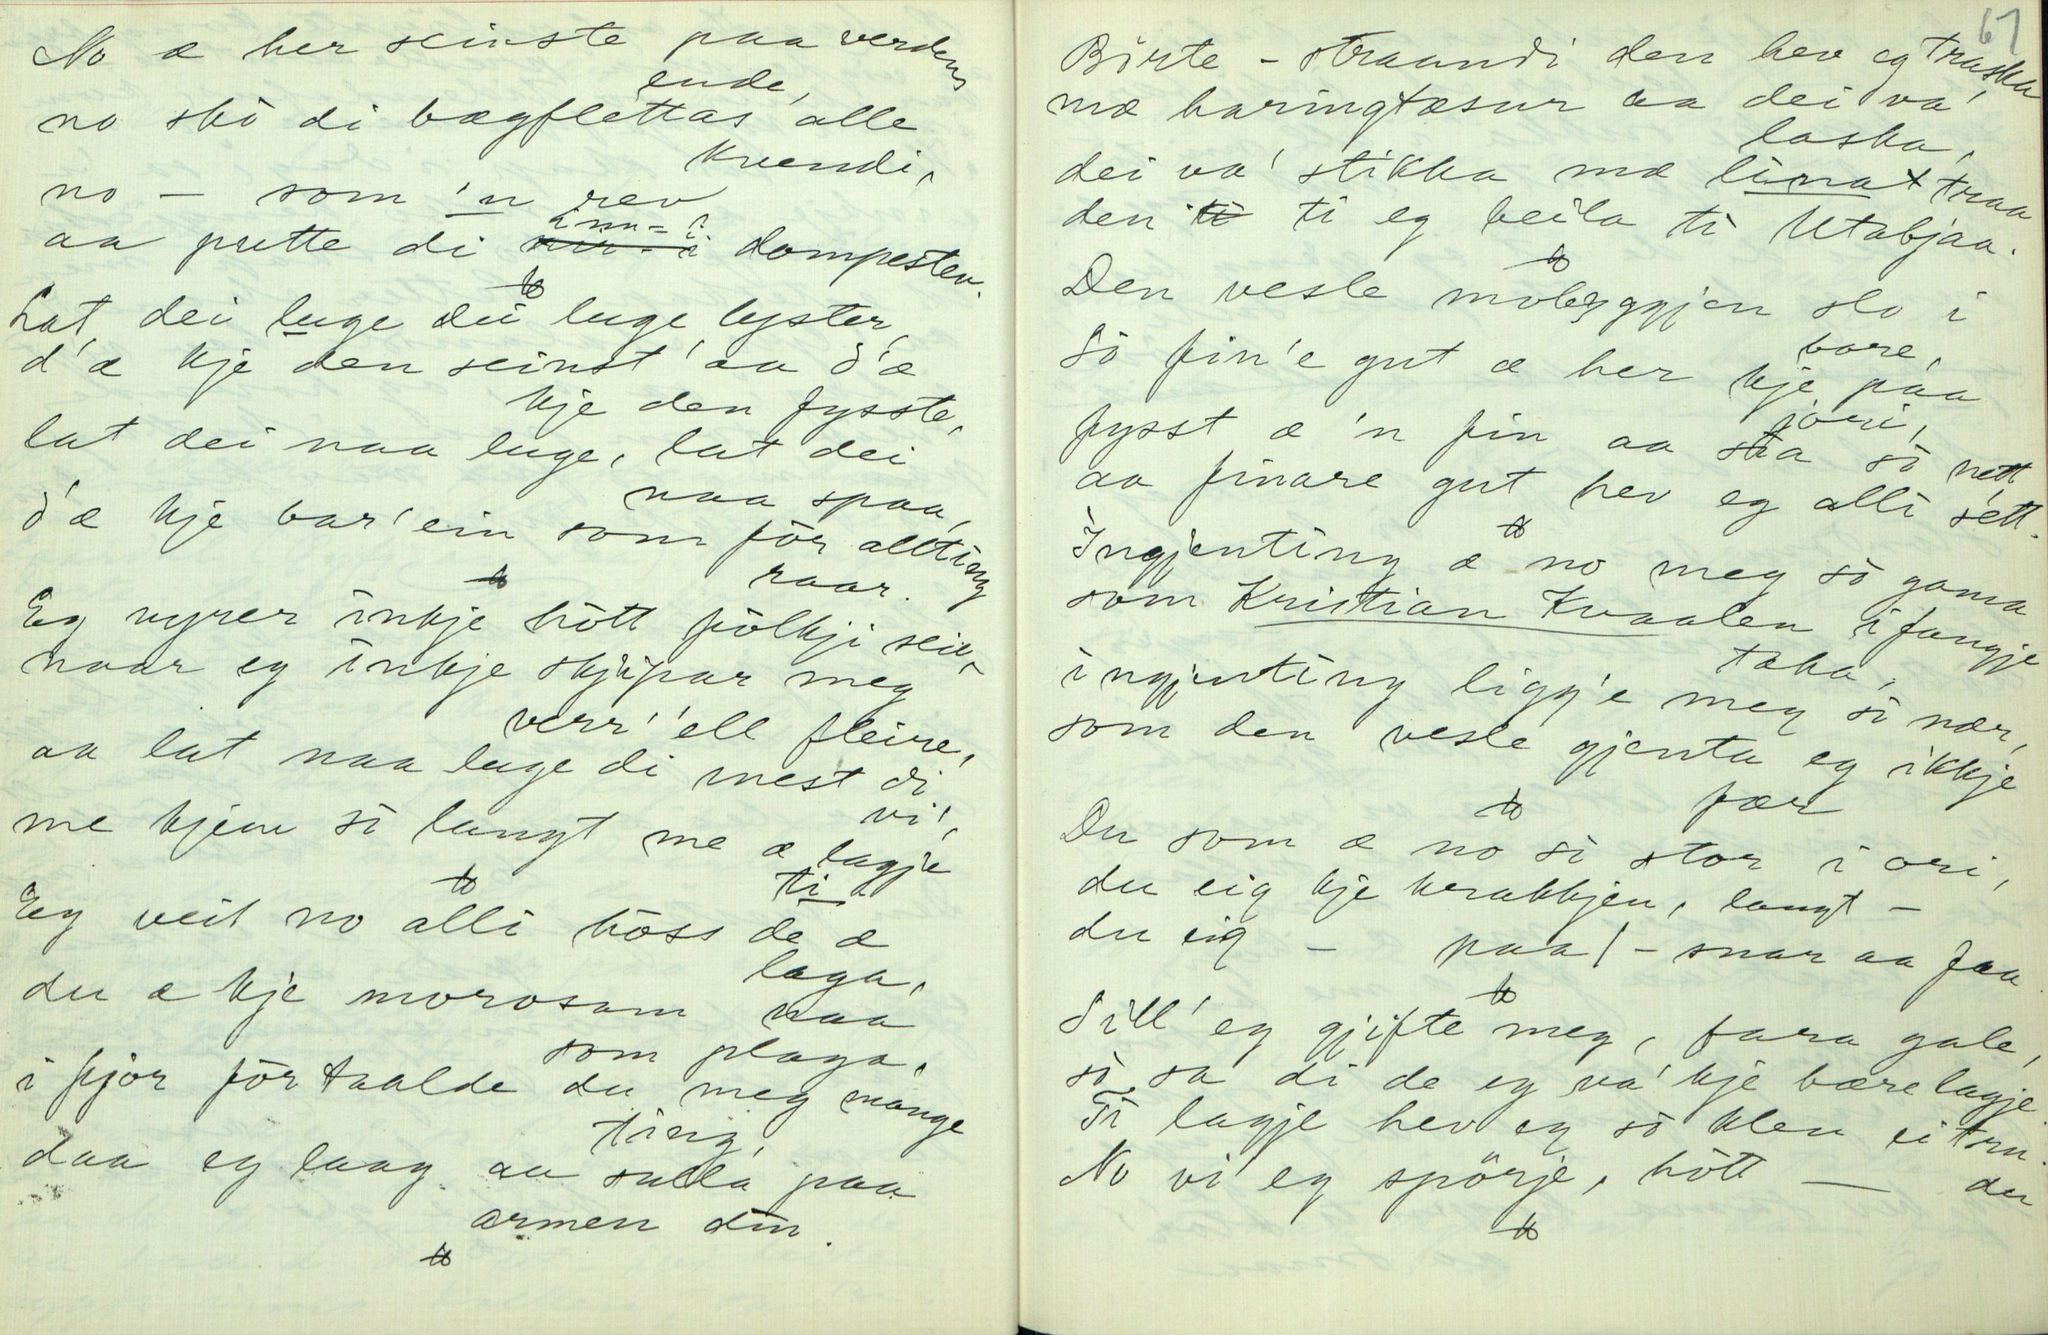 No æ her seinste paa verdens
ende,
no skò di bægflettas alle
kvendi,
no — som 'n rev
aa putte di inn-i dompesten.
Lat dei luge dei luge lyster,
d'æ kje den seinst' aa d'æ
kje den fysste,
lat dei naa luge, lat dei
naa spaa,
d'æ kje bar' ein som för allting
raar.
Eg vyrer inkje hött fölkji seie,
naar eg inkje skjipar meg
verr' ell fleire,
aa lat naa luge di mest di
vi',
me kjem so langt me æ lagje
ti
Eg veit no alli höss de æ
laga,
du æ kje morosam naa
som plaga,
i fjor förtaalde du meg mange
ting,
daa eg laag aa sulla paa
armen din.
67
Börte-straandi den hev eg traska
mæ haringtæsur aa dei va'
laska,
dei va' stikka mæ lina traa
den ti ti eg beila ti Utabjaa.
Den vesle möbyggjen slo i
bore,
So fin'e gut æ her kje paa
jori,
fysst æ 'n fin aa sta so nett
aa finare gut hev eg alli sett.
Ingjenting æ no meg so gama
som Kristian Kvaalen i fangje
taka,
ingjenting ligg'e meg so nær,
som den vesle gjenta eg ikkje
fær
Du som æ no so stor i ori,
du eig kje krakkjen, langt —
du eig — paa! - snar aa faa
Sill' eg gjifte meg, fara gale,
so sa di de eg va' kje bære lagje
Ti lagje hev eg so klen ei tru.
No vi eg spörje, hött — du